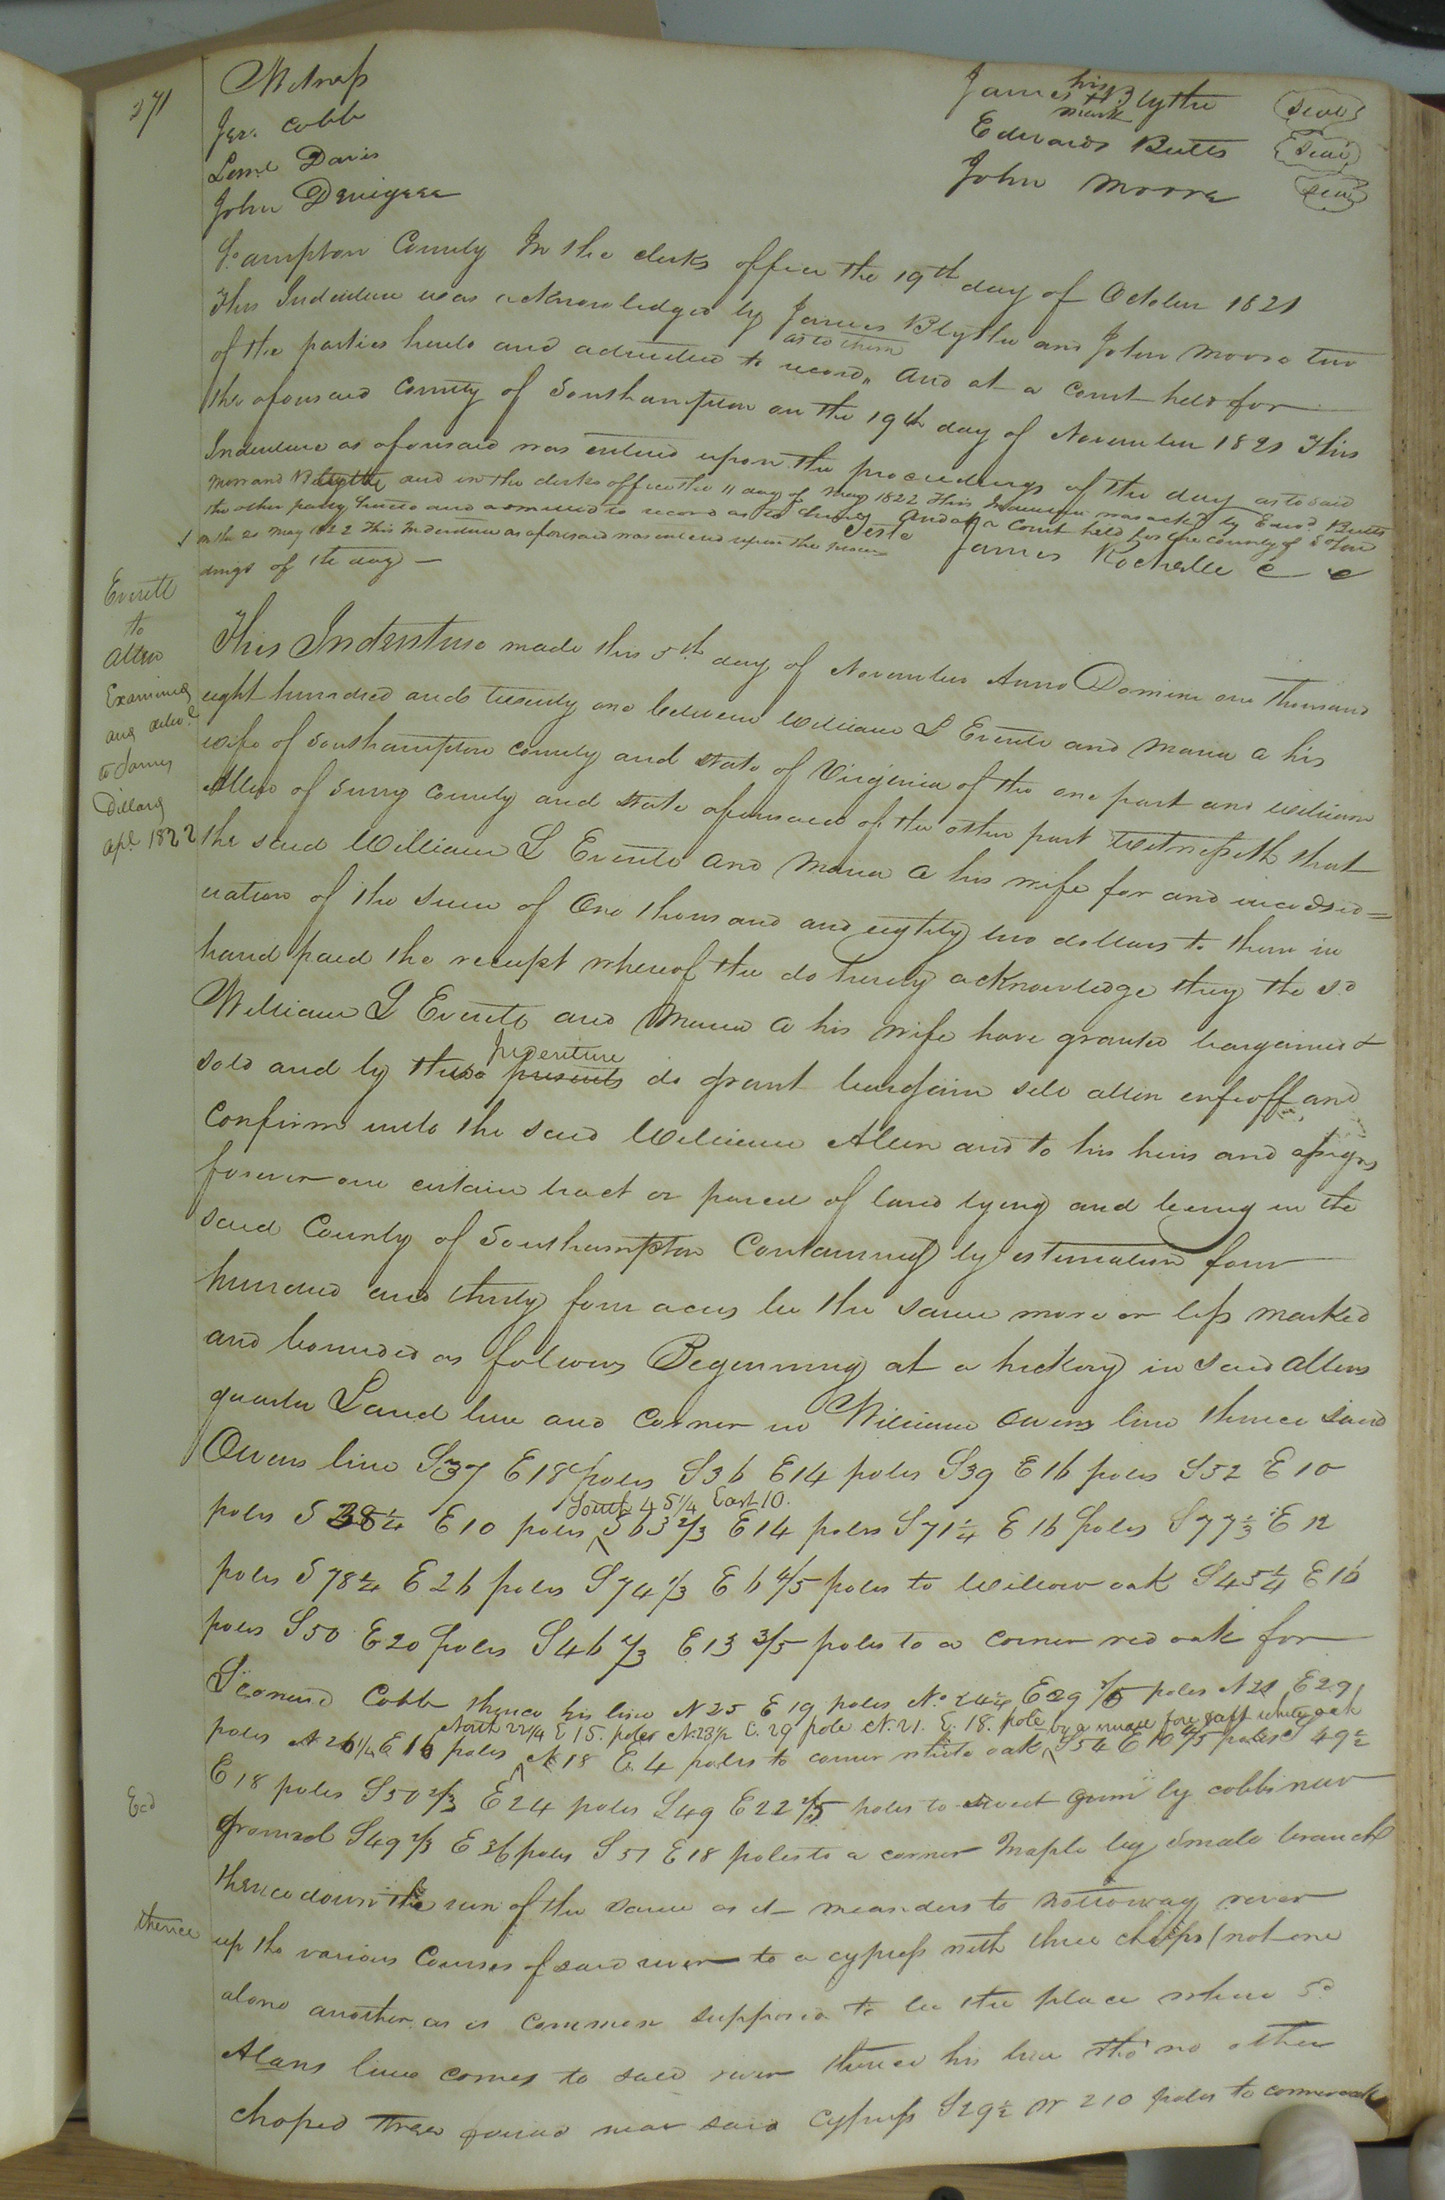 271
Witness
Jer. Cobb
Leml. Davis
John Denegree
James his + mark Blythe Seal
Edward Butts Seal
John Moore Seal
So.ampton County In the clerks office the 19th day of October 1821
This Indenture was acknowledged by James Blythe and John Moore two
of the parties hereto and admitted to record as to them, And at a Court held for
the aforesaid County of Southampton on the 19th day of November 1821 This
Indenture as aforesaid was entered upon the proceedings of the day as to said
Moor and Blythe and in the clerks office the 11 day of May 1822 This Indenture was ackd. by Edwd Butts
the other party hereto and admitted to record as to him, And at a Court held for the County of So.ton
on the 20 May 1822 This Indenture as aforesaid was entered upon the procee-
dings of the day — Teste James Rochelle C C
Everett
to
Allen
Examined
and deld.
to James
Dillard
apl. 1822
This Indenture made this 5th day of November Anno Domini one thousand
eight hundred and twenty one between William L Everett and Maria A his
wife of Southampton County and State of Virginia of the one part and William
Allen of Surry County and State aforesaid of the other part Witnesseth that
the said William L Everett and Maria A his wife for and in consid=
eration of the sum of One thousand and eighty two dollars to them in
hand paid the receipt whereof the do hereby acknowledge they the sd
William L Everett and Maria A his wife have granted bargained &
sold and by these presents Indenture do grant bargain sell alien enfeoff and
confirm unto the said William Allen and to his heirs and assigns
forever one certain tract or parcel of land lying and being in the
said County of Southampton Containing by estimation four
hundred and thirty four acres be the same more or less marked
and bounded as follows Beginning at a hickory in said Allens
quarter Land line and corner in William Owens line thence said
Owens line S37 E18 poles S36 E14 poles S39 E16 poles S52 E10
poles S 38¼ E10 poles South 45¼ East 10. S63⅔ E14 poles S71¼ E16 poles S77⅓ E12
poles S78¼ E26 poles S74⅓ E6⅘ poles to Willow oak S45¼ E16
poles S50 E20 poles S46⅔ E13⅗ poles to a corner red oak for
Cobb thence his line N25 E19 poles poles N21 E29
poles N26¼ E16 poles North 22¼ E 15. poles N.23½ E. 29 pole N.21. E. 18. pole N18 E. 4 poles to corner white oak by a white oak S54 E10⅘ poles S49½
E18 poles S50⅔ E24 poles S49 E22⅖ poles to sweet Gum by cobbs new
Ground S49⅔ E36 poles S51 E18 poles to a corner Maple by small branch
thence down the run of the same as it meanders to Nottoway river
thence up the various Courses of said river to a cypress with three chops (not one
alone another as is common supposed to be the place where sd
Alans line comes to said river thence his line tho' no other
choped trees found near said Cypress S29½ W 210 poles to corner oak